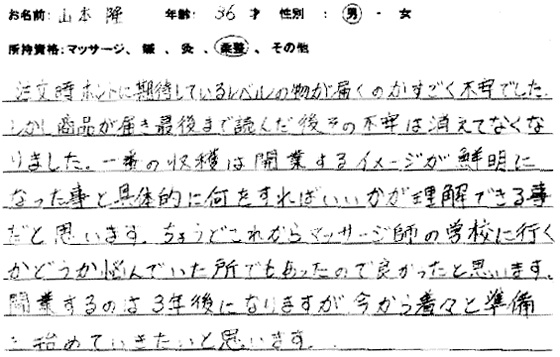 お名前:山本 隆 年齢: 36 才 性別 : 男 ・ 女
所持資格:マッサージ、鍼、灸、柔整、その他
注文時ホントに期待しているレベルの物が届くのかすごく不安でした.
しかし商品が届き最後まで読んだ後その不安は消えてなくな
りました。一番の収穫は開業するイメージが鮮明に
なった事と具体的に何をすればいいかが理解できる事
だと思います。ちょうどこれからマッサージ師の学校に行く
かどうか悩んでいた所でもあったので良かったと思います。
開業するのは3年後になりますが今から着々と準備
を始めていきたいと思います。